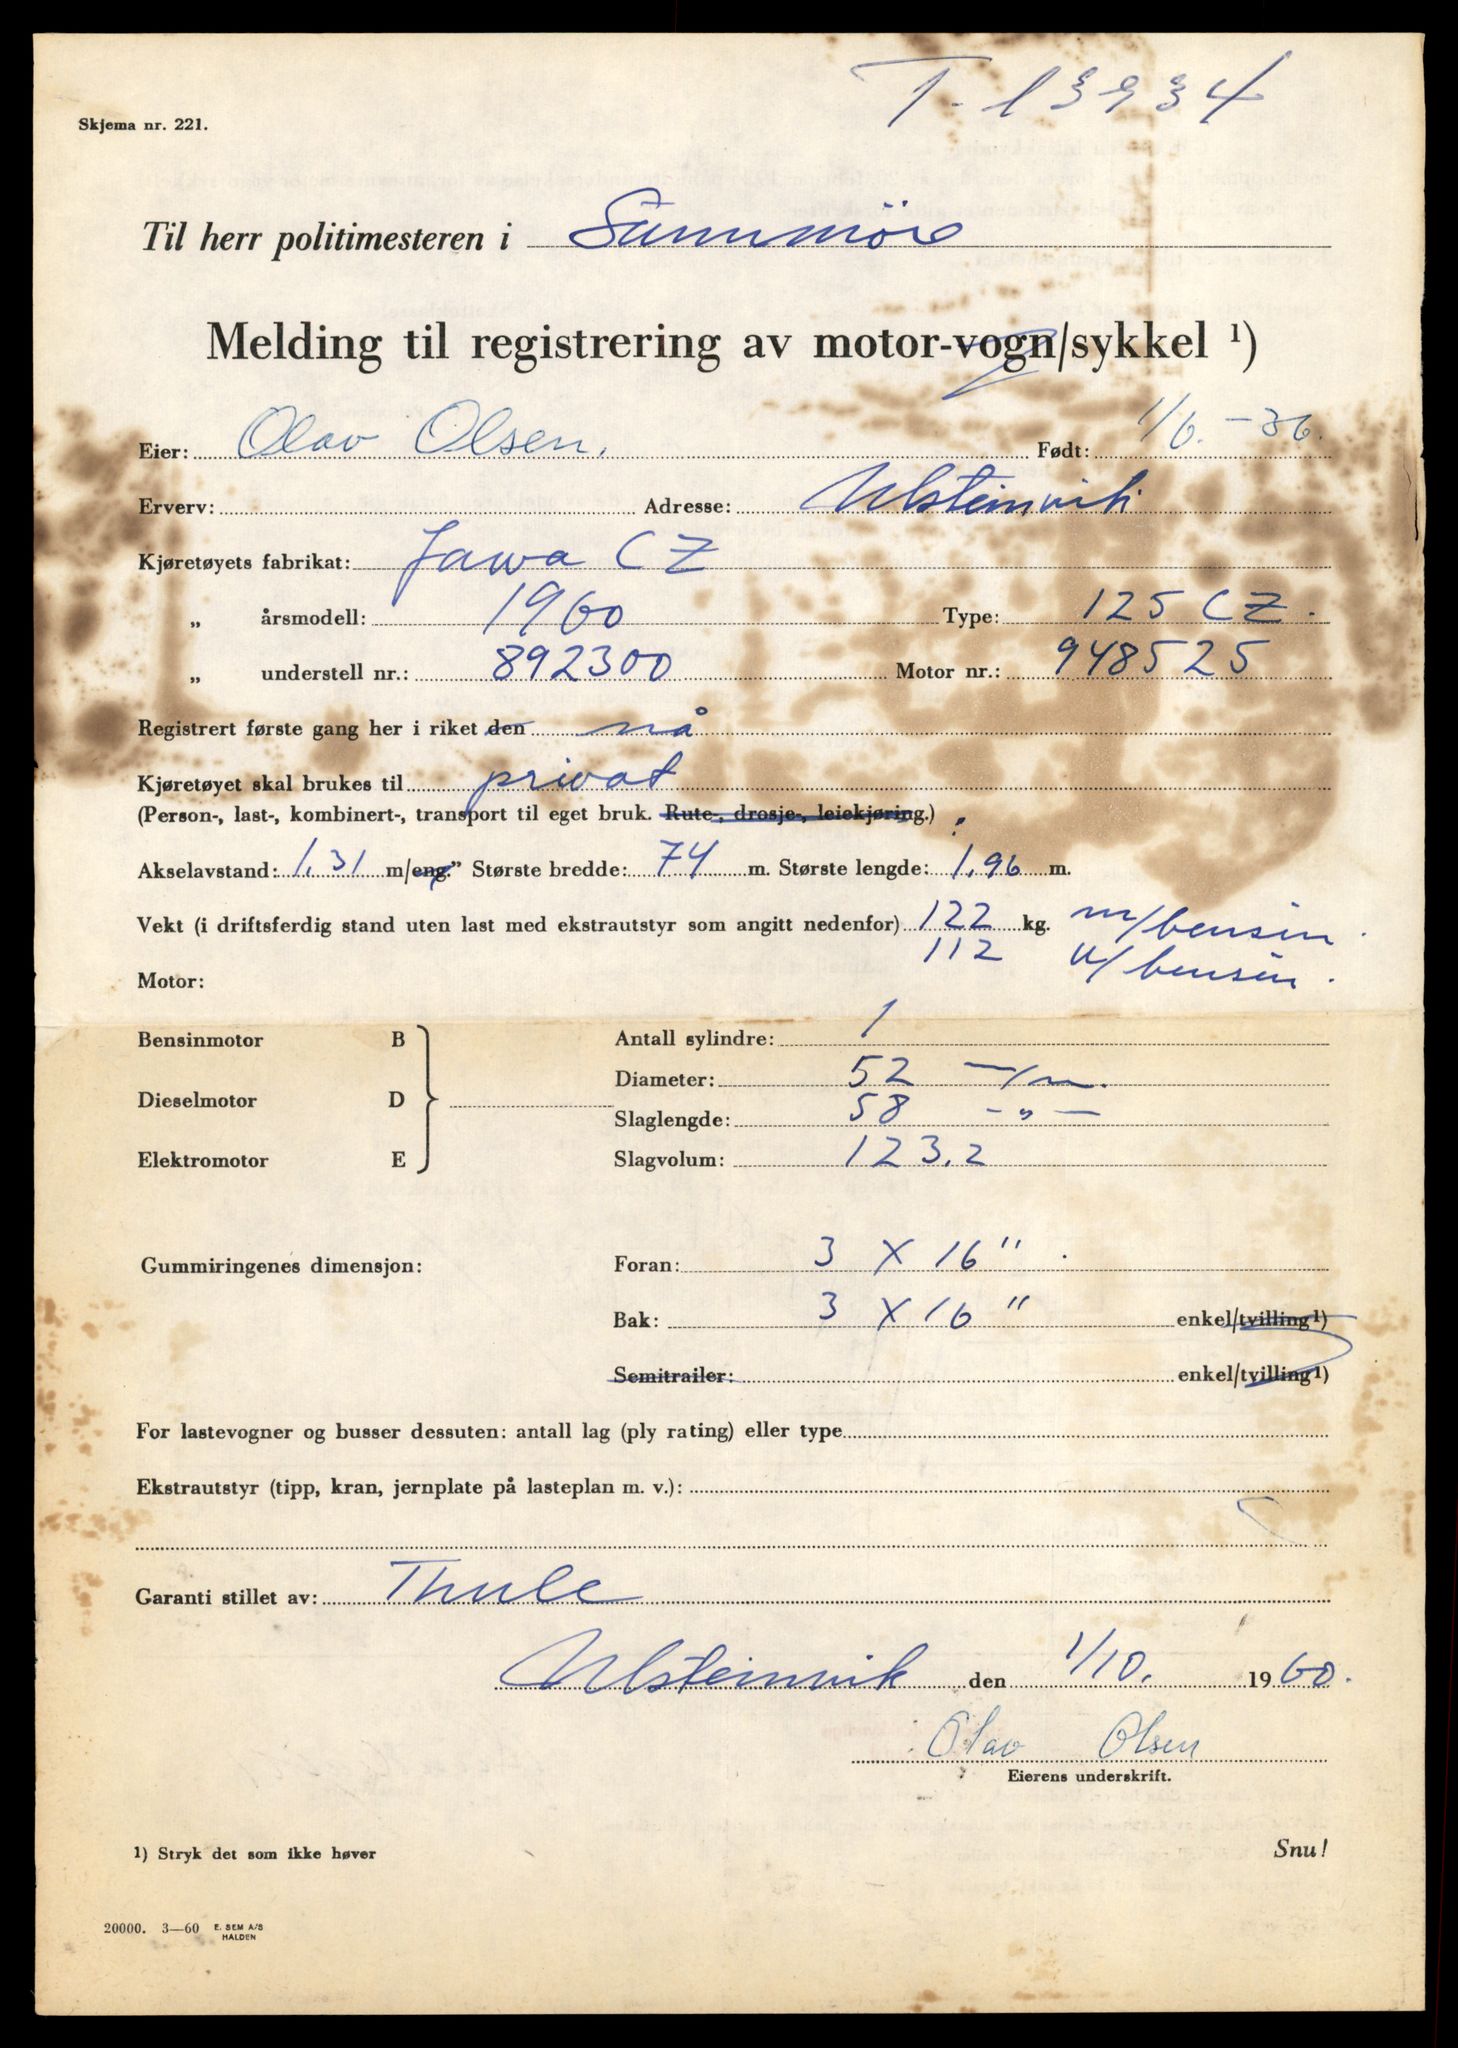 T-13934
Skjema nr. 221.
Til herr politimesteren i Sunnmöre
Melding til registrering av motor-vogn/sykkel ¹)
Eier: Olav Olsen. Født: 1/6.-36.
Erverv: Adresse: Ulsteinvik
Kjøretøyets fabrikat: Jawa CZ
„ årsmodell: 1960 Type: 125 CZ.
„ understell nr.: 892300 Motor nr.: 948525
Registrert første gang her i riket den nå
Kjøretøyet skal brukes til privat
(Person-, last-, kombinert-, transport til eget bruk. Rute-, drosje-, leiekjøring.)
Akselavstand: 1,31 m/eng.” Største bredde: 74 m. Største lengde: 1,96 m.
Vekt (i driftsferdig stand uten last med ekstrautstyr som angitt nedenfor) 122 kg. m/bensin.
112 u/bensin.
Motor:
Bensinmotor B Antall sylindre: 1
Diameter: 52 m/m.
Dieselmotor D
Slaglengde: 58 -„-
Elektromotor E Slagvolum: 123,2
Gummiringenes dimensjon: Foran: 3 X 16"
Bak: 3 X 16" enkel/tvilling¹)
Semitrailer: enkel/tvilling¹)
For lastevogner og busser dessuten: antall lag (ply rating) eller type
Ekstrautstyr (tipp, kran, jernplate på lasteplan m. v.):
Garanti stillet av: Thule
Ulsteinvik den 1/10. 1960.
Olav Olsen
Eierens underskrift.
1) Stryk det som ikke høver Snu!
20000. 3—60 E. SEM A/S
HALDEN